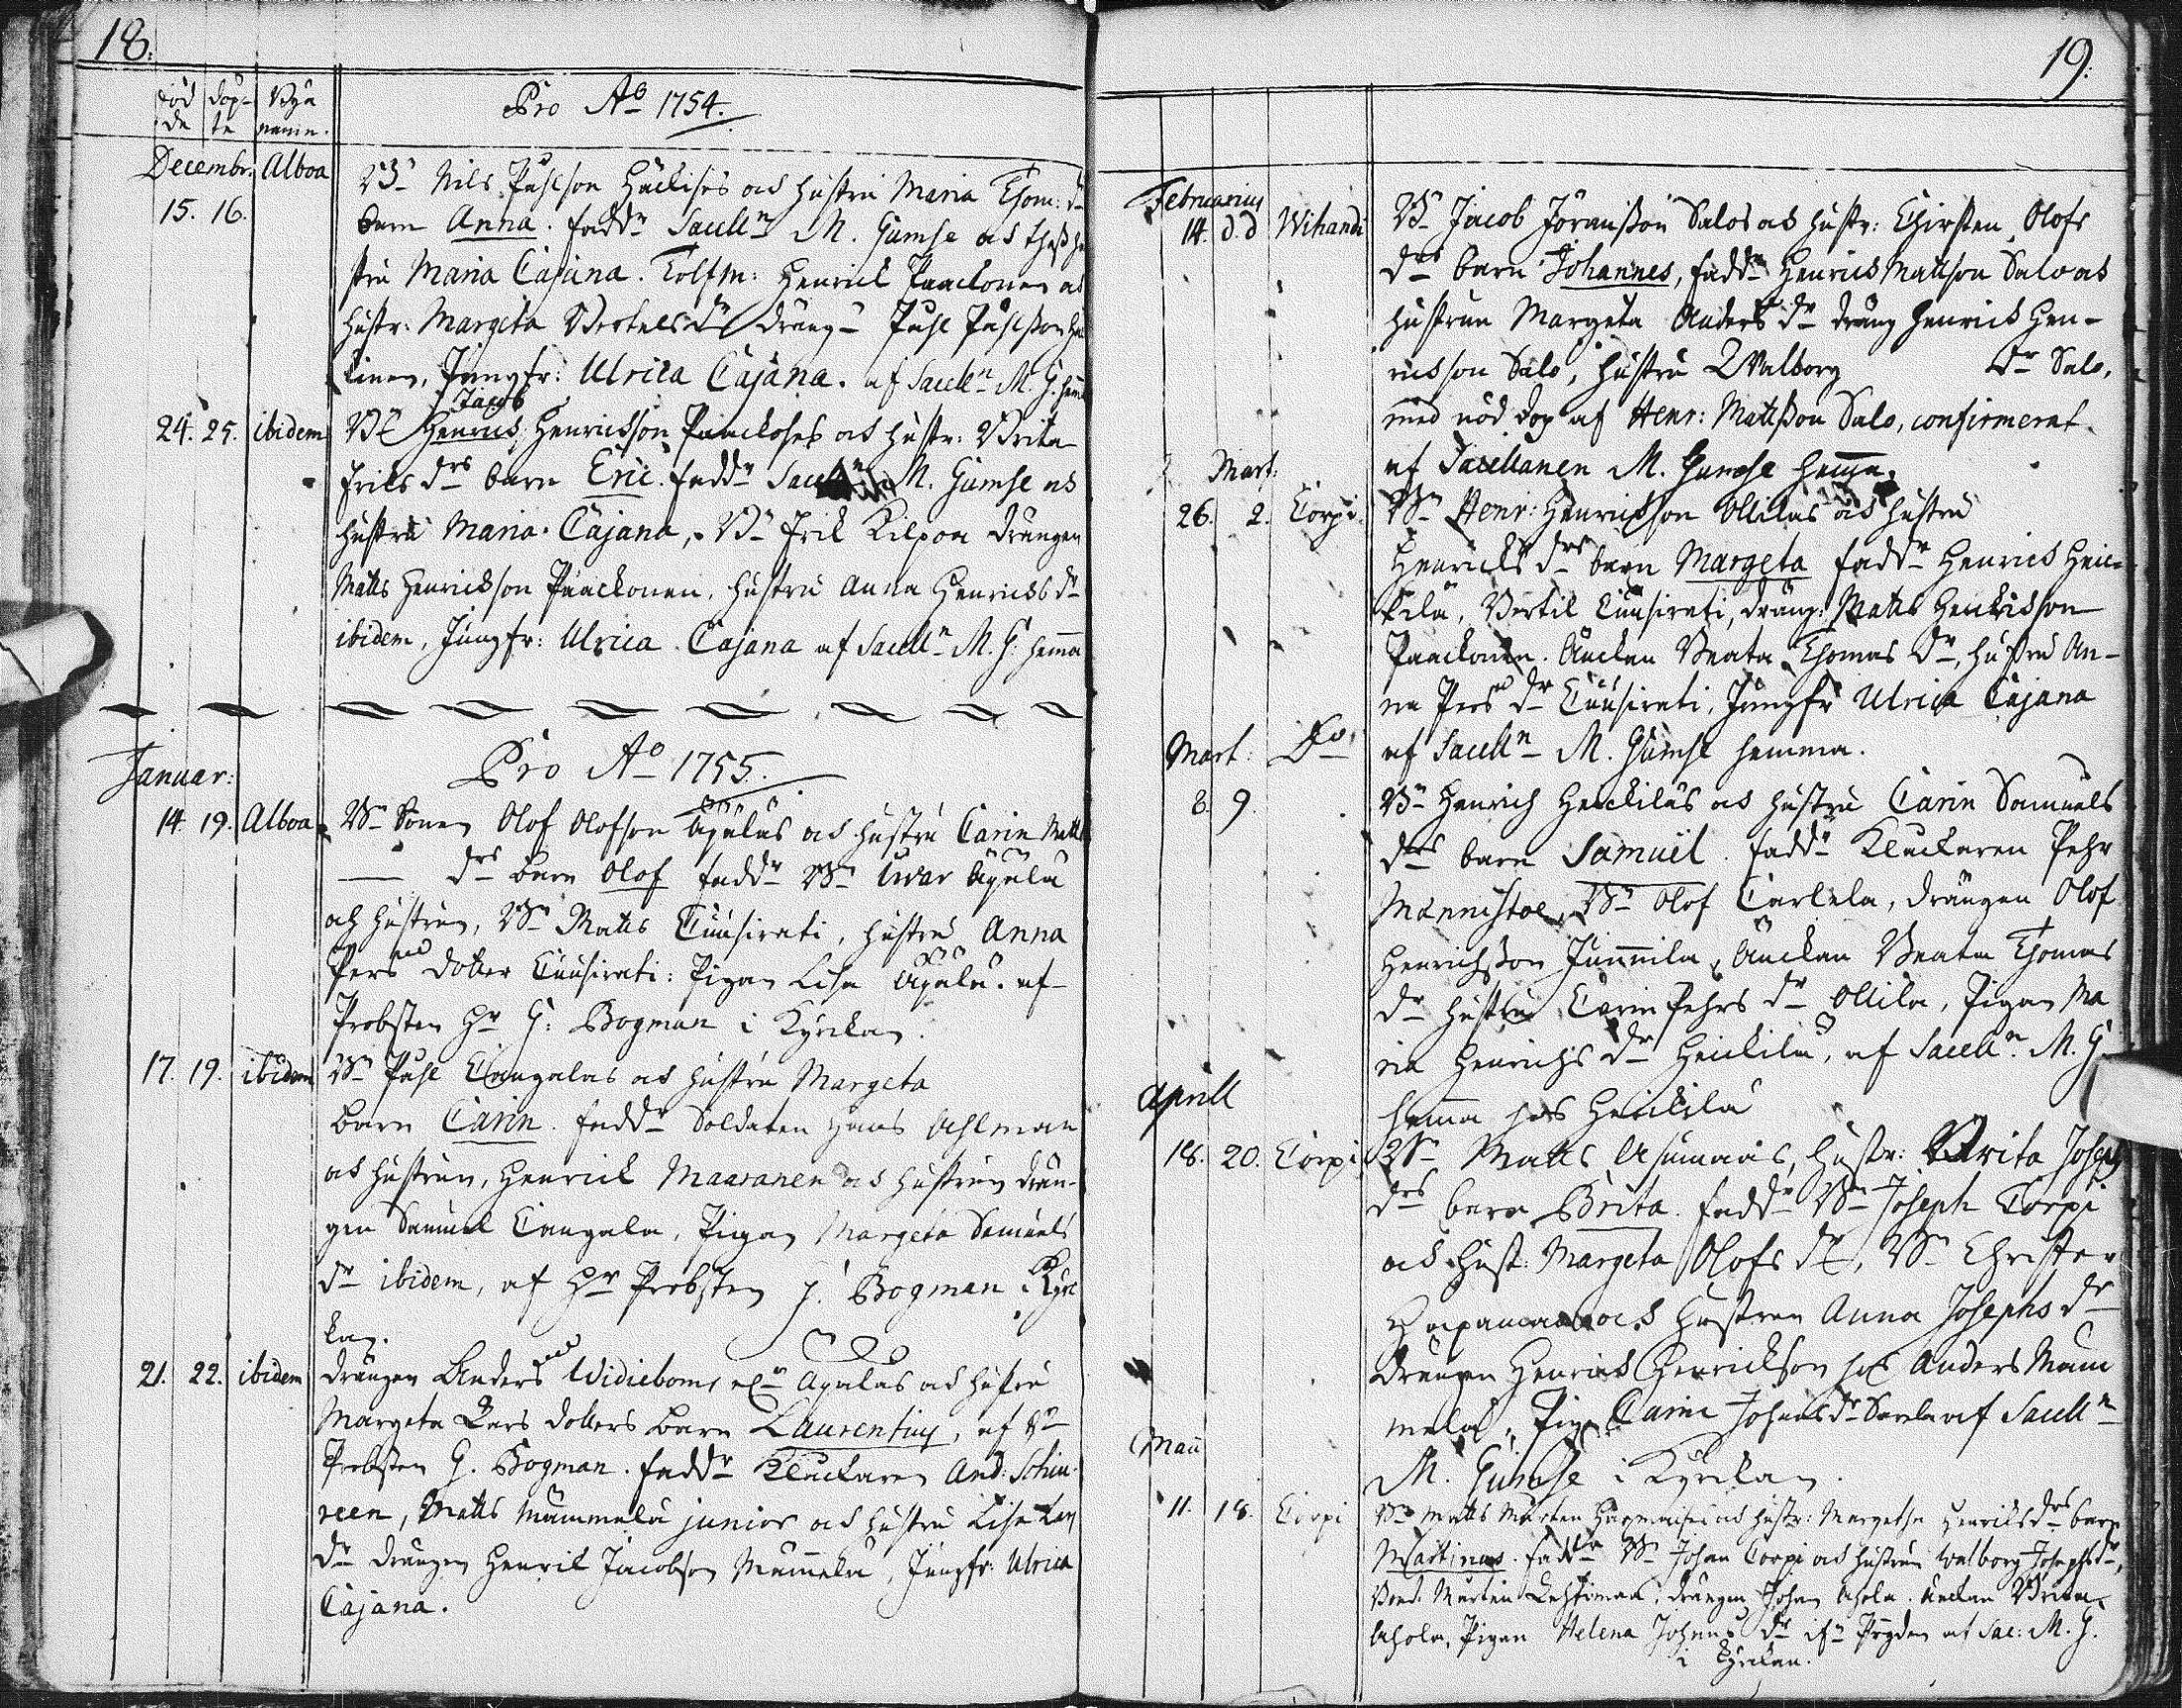 18.
föd
de
döp-
te
Bya
namn.
Pro Ao 1754.
Decembr. Alboa
15. 16.
Bn Nils Påhlson Häckises och hustru Maria Thom: drs
barn Anna. faddr Sacelln M. Gumse och thess hu
stru Maria Cajana. Tolfm: Henrich Paackonen och
hustr: Margeta Bertilsdr dräng Påhl Påhlsson
kinen, Jungfr: Ulrica Cajana. af Sacelln M. G. hema
Jacob
24. 25. ibidem Bn Henrics Henricsson Paackoses och hustr: Brita
Eriks drs barn Eric. faddr Sacelln M. Gumse och
hustru Maria Cajana, Bn Erik Kilpoa drängen
Matts Henrickson Paackonen, hustru Anna Henricks dr
ibidem, Jungfr: Ulrica Cajana af Sacelln M. G. hema
Januar:
Pro Ao 1755.
14. 19. Alboa Bn Sonen Olof Olofson Äyäläs och hustru Carin Matts
drs barn Olof faddr Bn Iwar Äyälä
och hustrun, Bn Matts Tuusirati, hustru Anna
Pers dotter Tuusirati: Pigan Lisa Äyälä. af
Probsten Hr G: Bogman i Kyrckan.
17. 19. ibidem Bn Påhl Cangalas och hustru Margeta
barn Carin. faddr Soldaten Hans Ahlman
och hustrun, Henrick Maaranen och hustrun drän-
gen Samuel Cangala, Pigan Margeta Samuels
dr ibidem, af Hr Probsten G. Bogman i Kyrc
kan.
21. 22. ibidem drängen Anders Widieboms Äyäläs och hustru
Margeta Lars dotters barn Laurentius, af Hr
Probsten G. Bogman. faddr Kläckaren And: Schu
reen, Matts Mammela junior och hustru Lisa Lars
dr drängen Henrik Jacobson Mammela, Jungfr: Ulrica
Cajana.
19.
Februarius
14. d.d Wihandi Bn Jacob Jöransson Salos och hustr: Chirsten Olofs
drs barn Johannes, faddr Henrics Mattson Salo och
hustrun Margeta Anders dr dräng Henrich Hen-
ricsson Salo, hustru Walborg dr Salo,
med nöd dop af Henr: Mattsson Salo, confirmerat
af Sacellanen M. Gumse hemma.
Mart:
26. 2. Corpi. Bn Henr: Henricsson Ollilas och hustru
Henrichs drs barn Margeta faddr Henrics Heic-
kilä, Bertil Tuusirati, dräng: Matts Henricsson
Paackonen. Änckan Beata Thomas dr, hustru An-
na Pers dr Tuusirati, Jungfr Ulrica Cajana
af Sacelln M. Gumse hemma.
Mart: Do
8. 9. Bn Henrich Heickiläs och hustru Carin Samuels
drs barn Samuel. faddr Kläckaren Pehr
Mannistoe, Bn Olof Carlela, drängen Olof
Henrichsson Junnila, Änckan Beata Thomas
dr hustru Carin Pehrs dr Ollila, Pigan Ma
ria Henrichs dr Heickilä, af Sacelln M. G.
hemma hos Heickilä
Aprill
18. 20. Corpi Bn Matts Asumaas, hustr: Brita Josephs
drs barn Brita. faddr Bn Joseph Corpi
och hust: Margeta Olofs dr, Bn Christer
och hustrun Anna Josephs dr
drängen Henrich Henrickson hos Anders Mam
mela, Pig: Carin Johans dr af Sacelln
M. Gumse i Kyrckan.
Maii
11. 18. Corpi Bn Matts Mårten och hustr: Margetha Henriksdrs barn
Martinus. faddr Bn Johan Corpi och hustrun Walborg Josephsdr,
Bond. Mårten Lehtimaa, drängen Johan Ahola. Änckan Brita
Ahola, Pigan Helena Johans dr af Sac: M. G.
i Kyrckan.